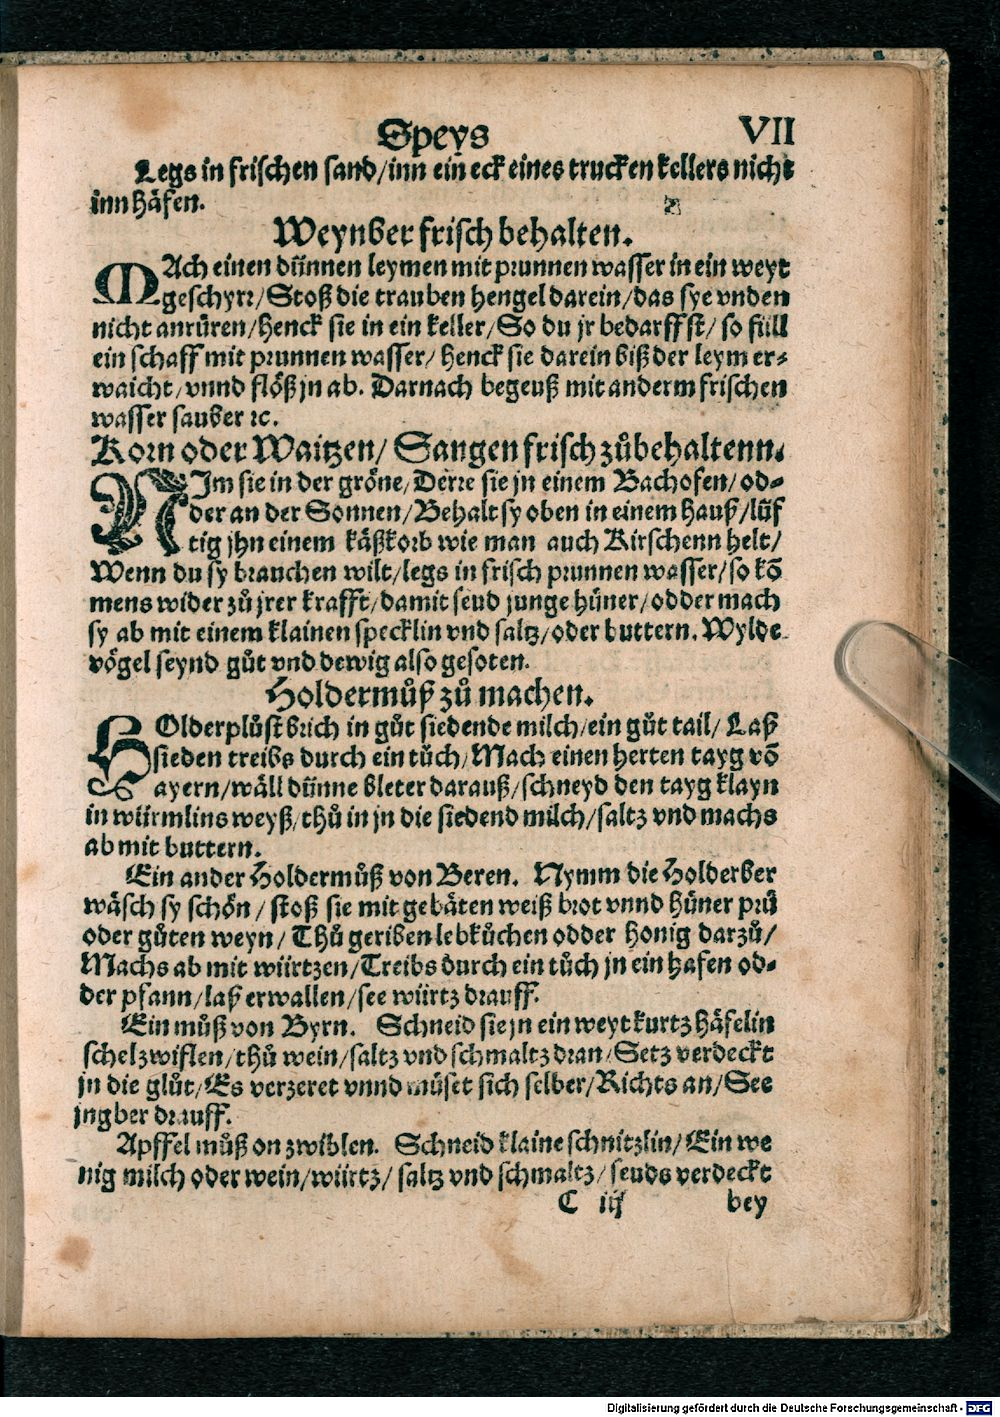 Speys VII
Legs in frischen sand/inn ein eck eines trucken kellers nicht
inn häfen.
Weynber frisch behalten.
MAch einen dünnen leymen mit prunnen wasser in ein weyt
geschyrr/Stoß die trauben hengel darein/das sye vnden
nicht anrüren/henck sie in ein keller/So du jr bedarffst/so füll
ein schaff mit prunnen wasser/henck sie darein biß der leym er-
waicht/vnnd flöß jn ab. Darnach begeuß mit anderm frischen
wasser sauber ꝛc.
Korn oder Waitzen/ Sangen frisch zůbehaltenn.
NIm sie in der gröne/Derre sie jn einem Bachofen/od-
der an der Sonnen/Behalt sy oben in einem hauß/lüf
tig jhn einem käßkorb wie man auch Kirschenn helt/
Wenn du sy brauchen wilt/legs in frisch prunnen wasser/so kō
mens wider zů jrer krafft/damit seud junge hüner/odder mach
sy ab mit einem klainen specklin vnd saltz/oder buttern. Wylde
vögel seynd gůt vnd dewig also gesoten.
Holdermůß zů machen.
HOlderplůst brich in gůt siedende milch/ein gůt tail/ Laß
sieden treibs durch ein tůch/Mach einen herten tayg vō
ayern/wäll dünne bleter darauß/schneyd den tayg klayn
in würmlins weyß/thů in jn die siedend milch/saltz vnd machs
ab mit buttern.
Ein ander Holdermůß von Beren. Nymm die Holderber
wäsch sy schön/stoß sie mit gebäten weiß brot vnnd hüner prü
oder gůten weyn/Thů geriben lebkůchen odder honig darzů/
Machs ab mit würtzen/Treibs durch ein tůch jn ein hafen od-
der pfann/laß erwallen/see würtz drauff.
Ein můß von Byrn. Schneid sie jn ein weyt kurtz häfelin
schelzwiflen/thů wein/saltz vnd schmaltz dran/Setz verdeckt
jn die glůt/Es verzeret vnnd můset sich selber/Richts an/See
jngber drauff.
Apffel můß on zwiblen. Schneid klaine schnitzlin/Ein we
nig milch oder wein/würtz/saltz vnd schmaltz/seuds verdeckt
C iij bey
Digitalisierung gefördert durch die Deutsche Forschungsgemeinschaft - DFG